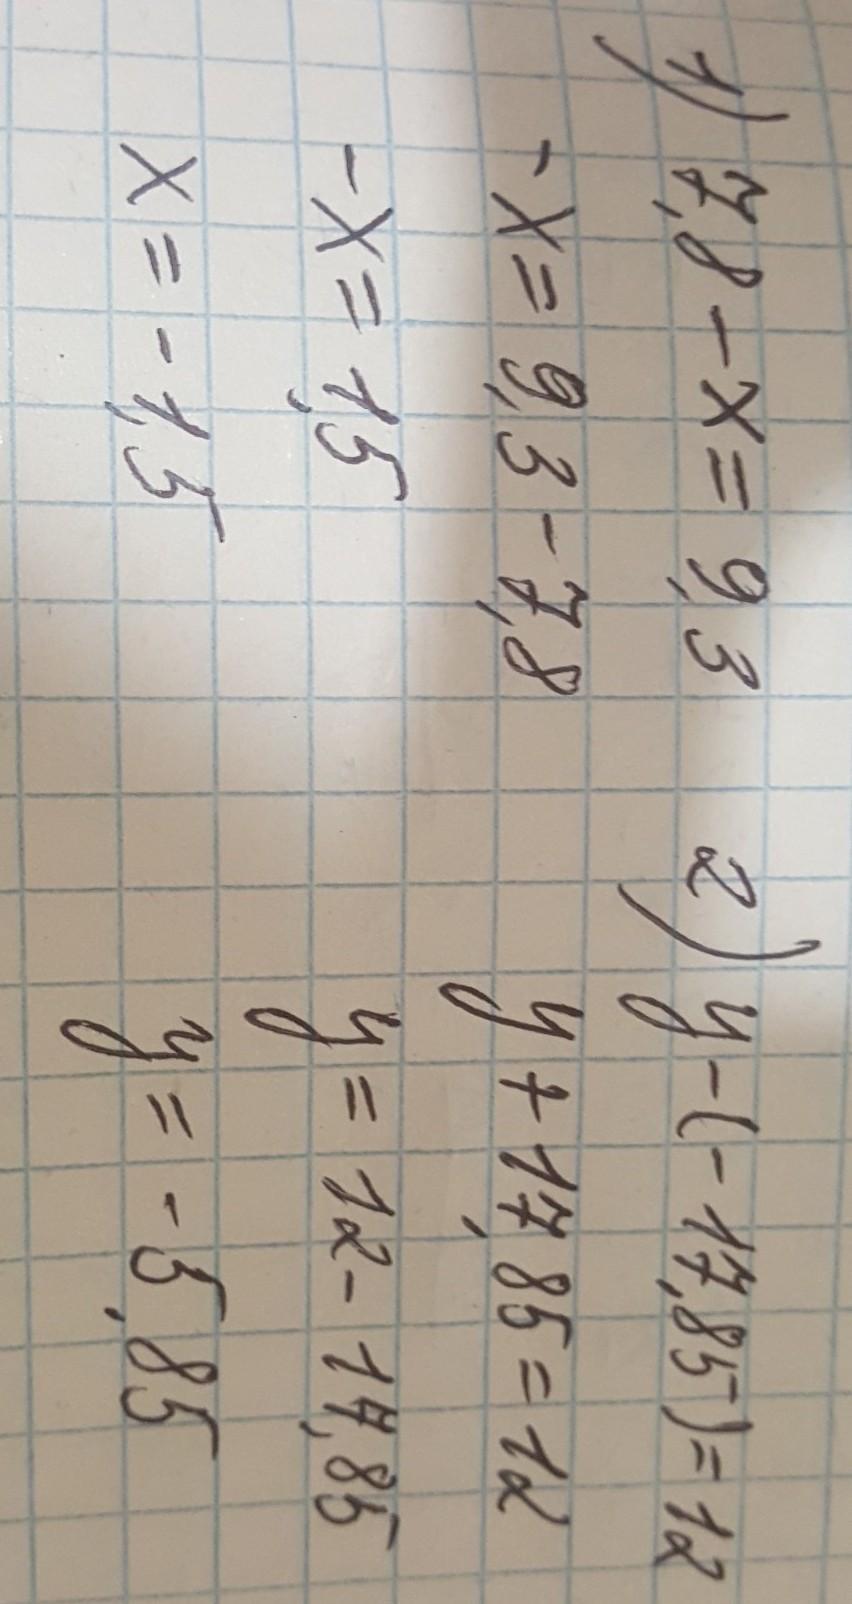 1) 7,8 - x = 9,3
- x = 9,3 - 7,8
- x = 1,5
x = - 1,5
2) y - (- 17,85) = 12
y + 17,85 = 12
y = 12 - 17,85
y = - 5,85